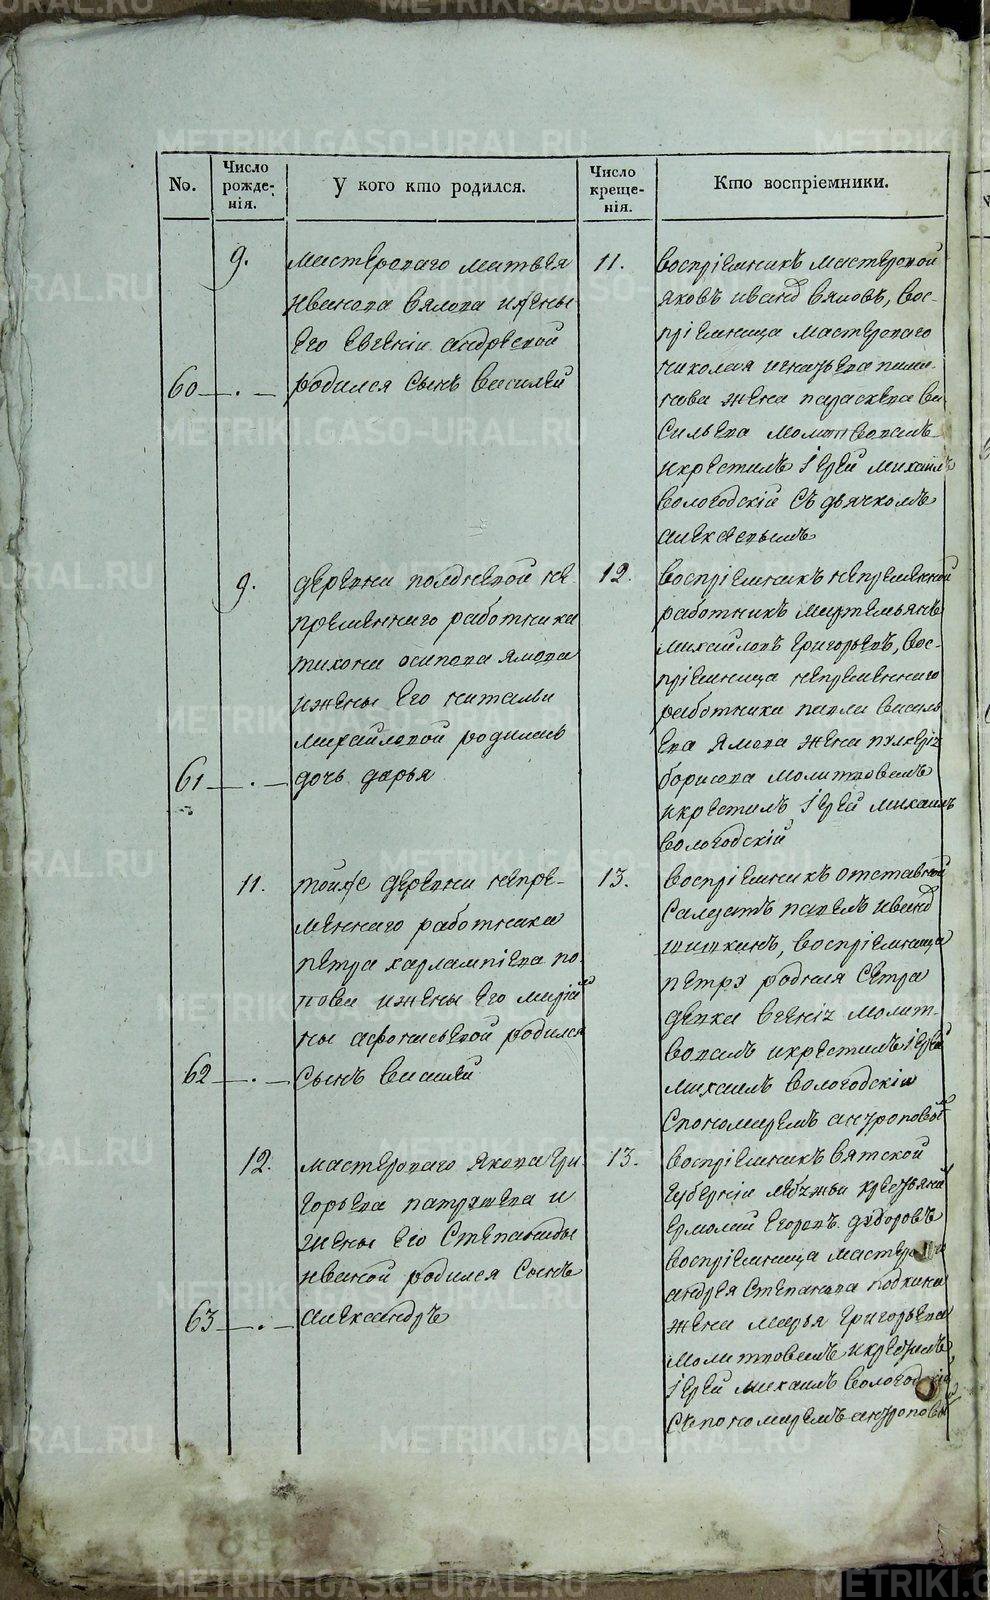 No.
Число рожде-нія.
У кого кто родился.
Число креще-нія.
Кто воспріемники.
9.
мастероваго матвея
иванова вялова ижены
его евгеніи андревой
60 родился сынъ василей
11.
воспріемникъ мастеровой
яковъ иванд вяловъ, вос-
пріемница мастероваго
николая игнатьева
жена параскева ва
сильева молитвовалъ
икрестилъ іерей михаилъ
вологодскій съ дьячкомъ
алексеевымъ
9.
деревни полдневой не-
пременнаго работника
тихона осипова ямова
ижены его натальи
михайловой родилась
61 дочь дарья
12.
воспріемникъ непременной
работникъ мартемьянъ
михайловъ григорьевъ, вос-
пріемница непременнаго
работника павла василь
ева ямова жена пулхерія
борисова молитвовалъ
икрестилъ іерей михаилъ
вологодскій
11.
тойже деревни непре-
меннаго работника
петра харлампіева по-
пова ижены его маріа
ны афонасьевой родился
62 сынъ василей
13.
воспріемникъ отставной
салдатъ павелъ иванд
шишкинъ, воспріемница
петру родная сетра
девка евгенія молит-
вовалъ икрестилъ іерей
михаилъ вологодскій
спономаремъ антроповы
12.
мастероваго якова гри-
горьева и
жены его степаниды
иваной родился сынъ
63 александръ
13.
воспріемникъ вятской
губерніи крестьянинъ
ермолай егоровъ
воспріемница мастероваго
андрея степанова
жена марья григорьева
молитвовалъ икрестилъ
іерей михаилъ вологодскій
спономаремъ антроповы